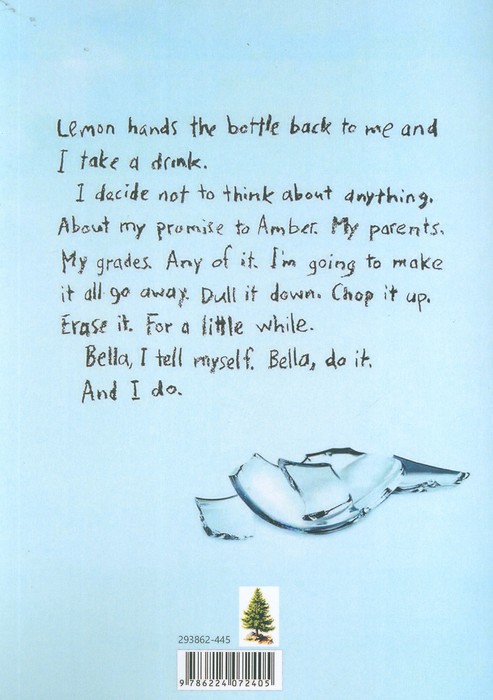 Lemon hands the bottle back to me and
I take a drink.
I decide not to think about anything.
About my promise to Amber. My parents.
My grades. Any of it. I'm going to make
it all go away. Dull it down. Chop it up.
Erase it. For a little while.
Bella, I tell myself. Bella, do it.
And I do.
293862-445
9 786224 072405